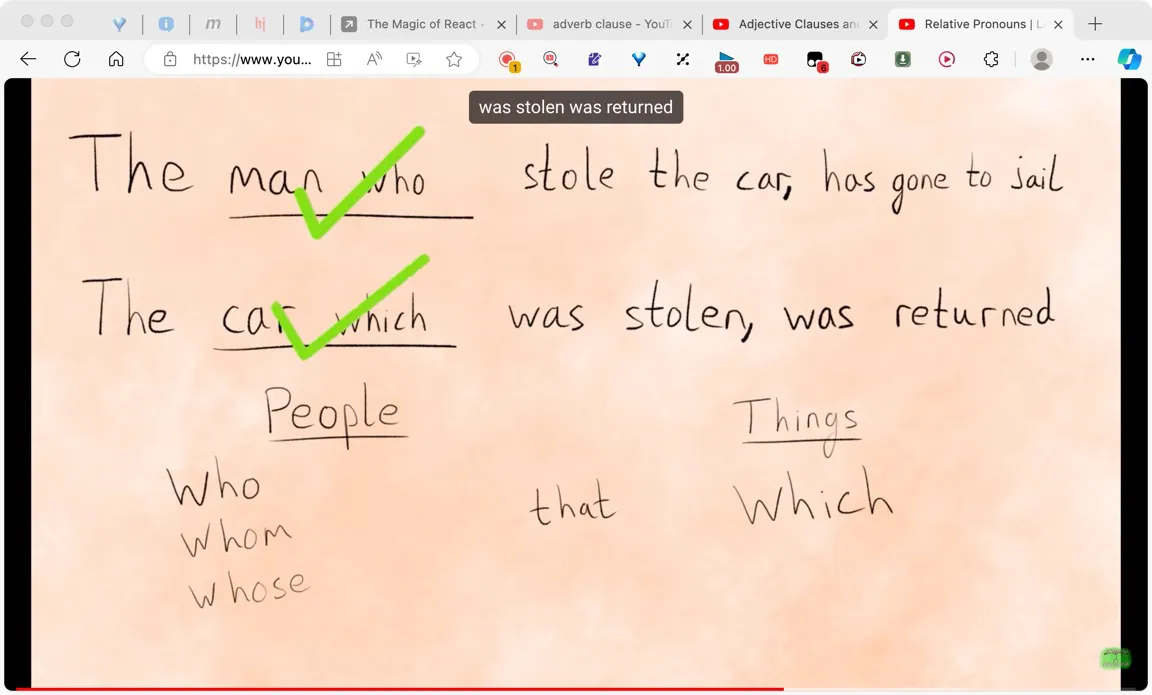 The Magic of React -
adverb clause - YouT
Adjective Clauses an
Relative Pronouns | L
https://www.you...
1
1.00
HD
6
was stolen was returned
The man who stole the car, has gone to jail
The car which was stolen, was returned
People Things
Who that Which
Whom
Whose